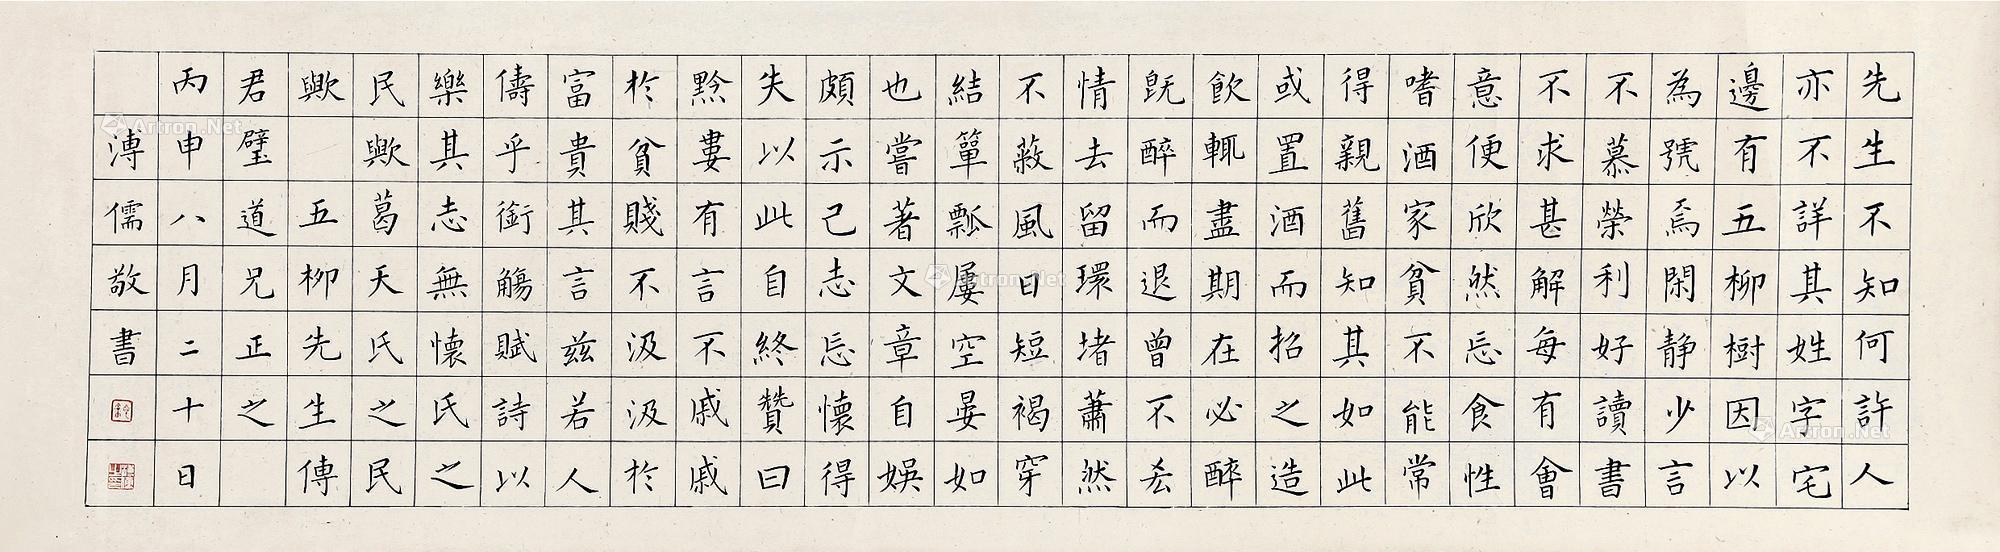 先生不知何許人
亦不詳其姓字宅
邊有五柳樹因以
為號焉閑靜少言
不慕榮利好讀書
不求甚解每有會
意便欣然忘食性
嗜酒家貧不能常
得親舊知其如此
或置酒而招之造
飲輒盡期在必醉
既醉而退曾不吝
情去留環堵蕭然
不蔽風日短褐穿
結簞瓢屢空晏如
也嘗著文章自娛
頗示己志忘懷得
失以此自終贊曰
黔婁有言不戚戚
於貧賤不汲汲於
富貴其言茲若人
儔乎銜觴賦詩以
樂其志無懷氏之
民歟葛天氏之民
歟 五柳先生傳
君璧道兄正之
丙申八月二十日
溥儒敬書
Artron.Net
Artron.Net
Artron.Net